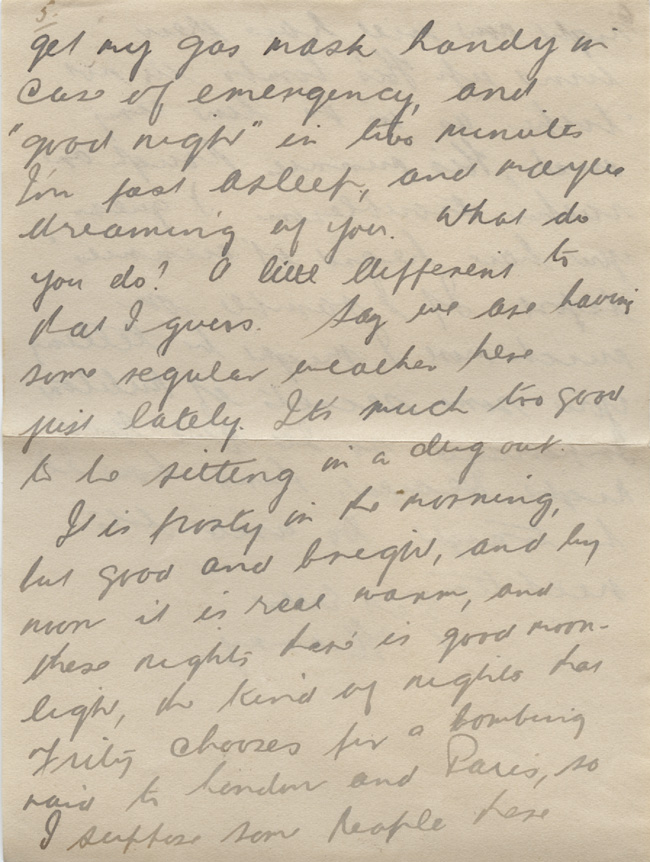 5.
get my gas mask handy in
case of emergency, and
"good night" in two minutes
I'm fast asleep, and maybe
dreaming of you. What do
you do? A little different to
that I guess. Say we are having
some regular weather here
just lately. It's much too good
to be sitting in a dug out.
It is frosty in the morning,
but good and bright, and by
noon it is real warm, and
these nights there is good moon-
light, the kind of nights that
Fritz chooses for a bombing
raid to London and Paris, so
I suppose some people there